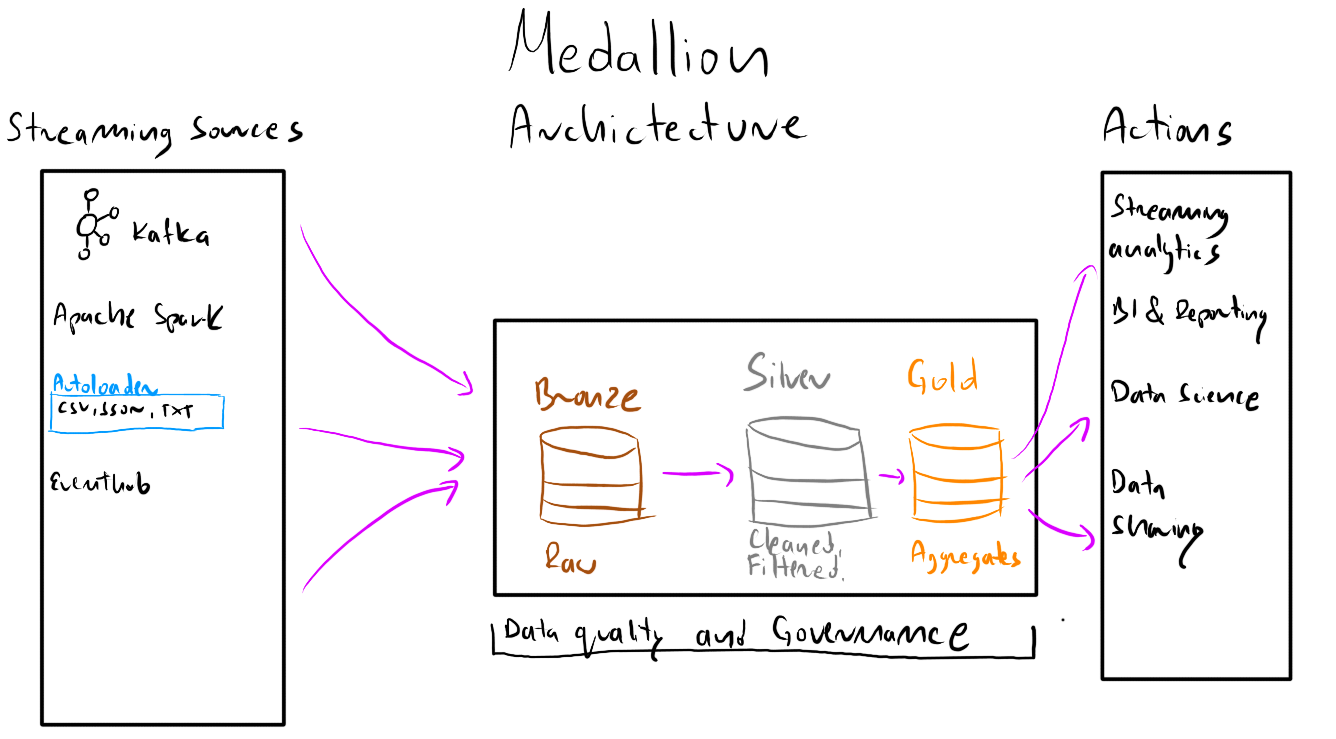 Medallion
Archictecture
Streaming Sources
Kafka
Apache Spark
Autoloader
CSV, JSON, TXT
Eventhub
Bronze
Raw
Silver
Cleaned,
Filtered.
Gold
Aggregates
Data quality and Governance
Actions
Streaming
analytics
BI & Reporting
Data Science
Data
Sharing